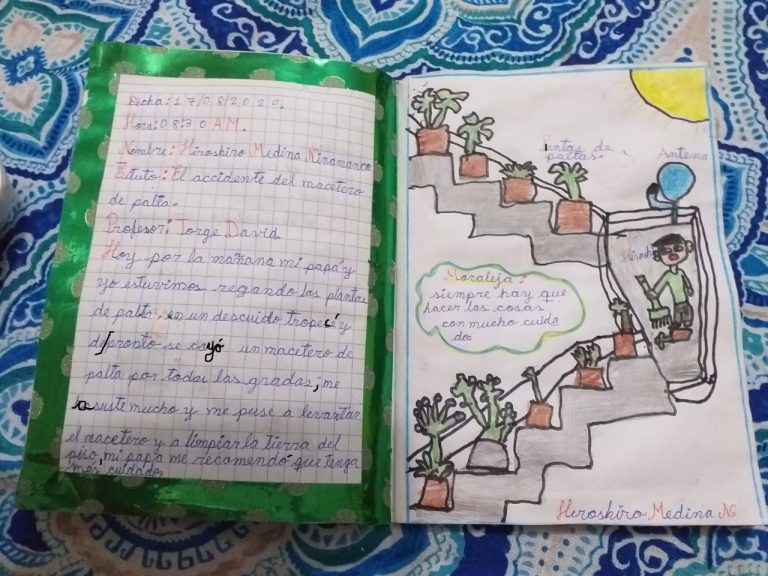 Fecha: 17/08/2020.
Hora: 08:30 A.M.
Nombre: Hiroshiro Medina Ninamanco
Título: El accidente del macetero
de palta.
Profesor: Jorge David
Hoy por la mañana mi papá y
yo estuvimos regando las plantas
de palta en un descuido tropecé y
de pronto se cayó un macetero de
palta por todas las gradas, me
asuste mucho y me puse a levantar
el macetero y a limpiar la tierra del
piso, mi papá me recomendó que tenga
mas cuidado
Pantas de
paltas.
Antena
Hiroshi
Moraleja:
siempre hay que
hacer las cosas
con mucho cuida
do
Hiroshiro Medina N